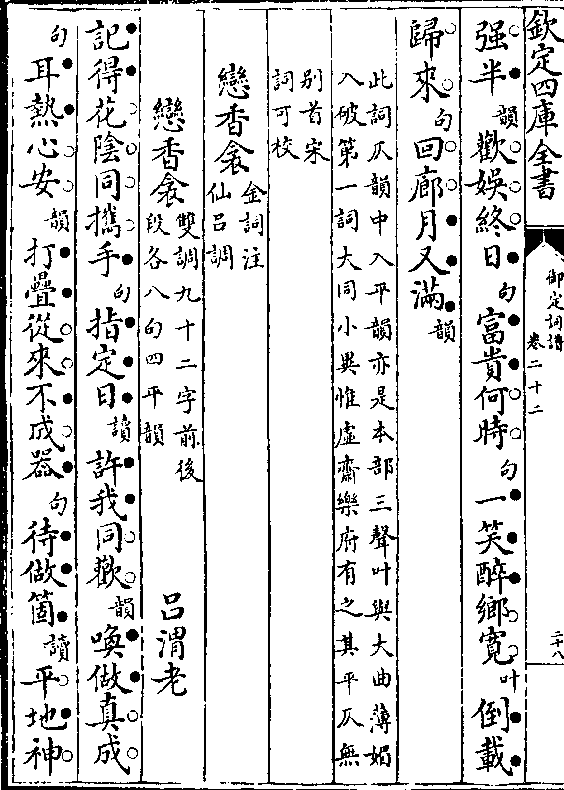 欽定四庫全書
御定詞譜
卷二十二
二十八
强半韻歡娛終日句富貴何時句一笑醉鄉寬叶倒載
歸來句回廊月又滿韻
此詞仄韻中入平韻亦是本部三聲叶與大曲薄媚
入破第一詞大同小異惟虛齋樂府有之其平仄無
别首宋
詞可校
戀香衾金詞注
仙吕調
戀香衾雙調九十二字前後
段各八句四平韻
吕渭老
記得花陰同攜手句指定日讀許我同歡韻喚做真成
句耳熱心安韻打疊從來不成器句待做箇讀平地神